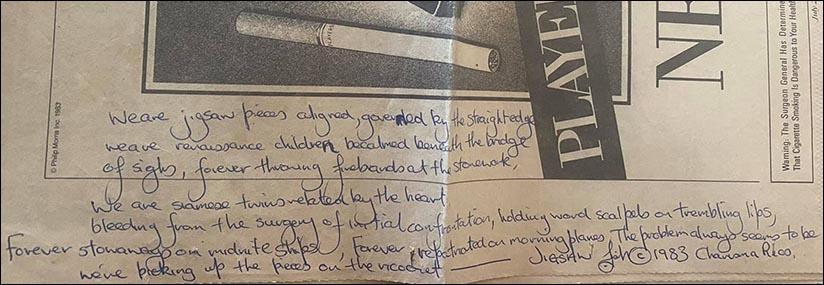 PLAYERS
PLAYE
NE
July
© Philip Morris Inc. 1983
Warning: The Surgeon General Has Determine
That Cigarette Smoking Is Dangerous to Your Health
Weare jigsaw pieces aligned, governed by the straight edge
weare renaissance children becalmed beneath the bridge
of sighs, forever throwing firebrands at the stonework,
We are siamese twins related by the heart
bleeding from the surgery of initial confrontation, holding word scalpels on trembling lips,
forever stowaways on midnite ships, Forever repatriated on morning planes, The problem always seems to be
we're picking up the pieces on the ricochet —— JIGSAW fish © 1983 Charisma